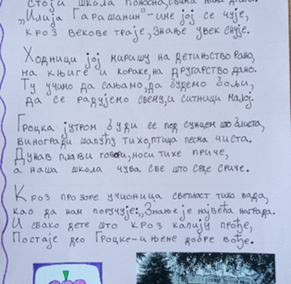 стоји школа поносна,
„Илија Гарашанин" – име јој се чује,
кроз векове траје, знање увек снује.
Ходници јој миришу на детињство рано,
на књиге и кораке, на другарство дано.
Ту учимо да сањамо, да будемо бољи,
да се радујемо свему, и ситници малој.
Гроцка јутром буди се под сунцем што блиста,
виногради шапућу тихо, птица песма чиста.
Дунав плави говори, носи тихе приче,
а наша школа чува све што срце сриче.
Кроз прозоре учионица светлост тихо пада,
као да нам поручује: „Знање је највећа награда.
И свако дете што кроз капију прође,
Постаје део Гроцке – и њене добре вође.